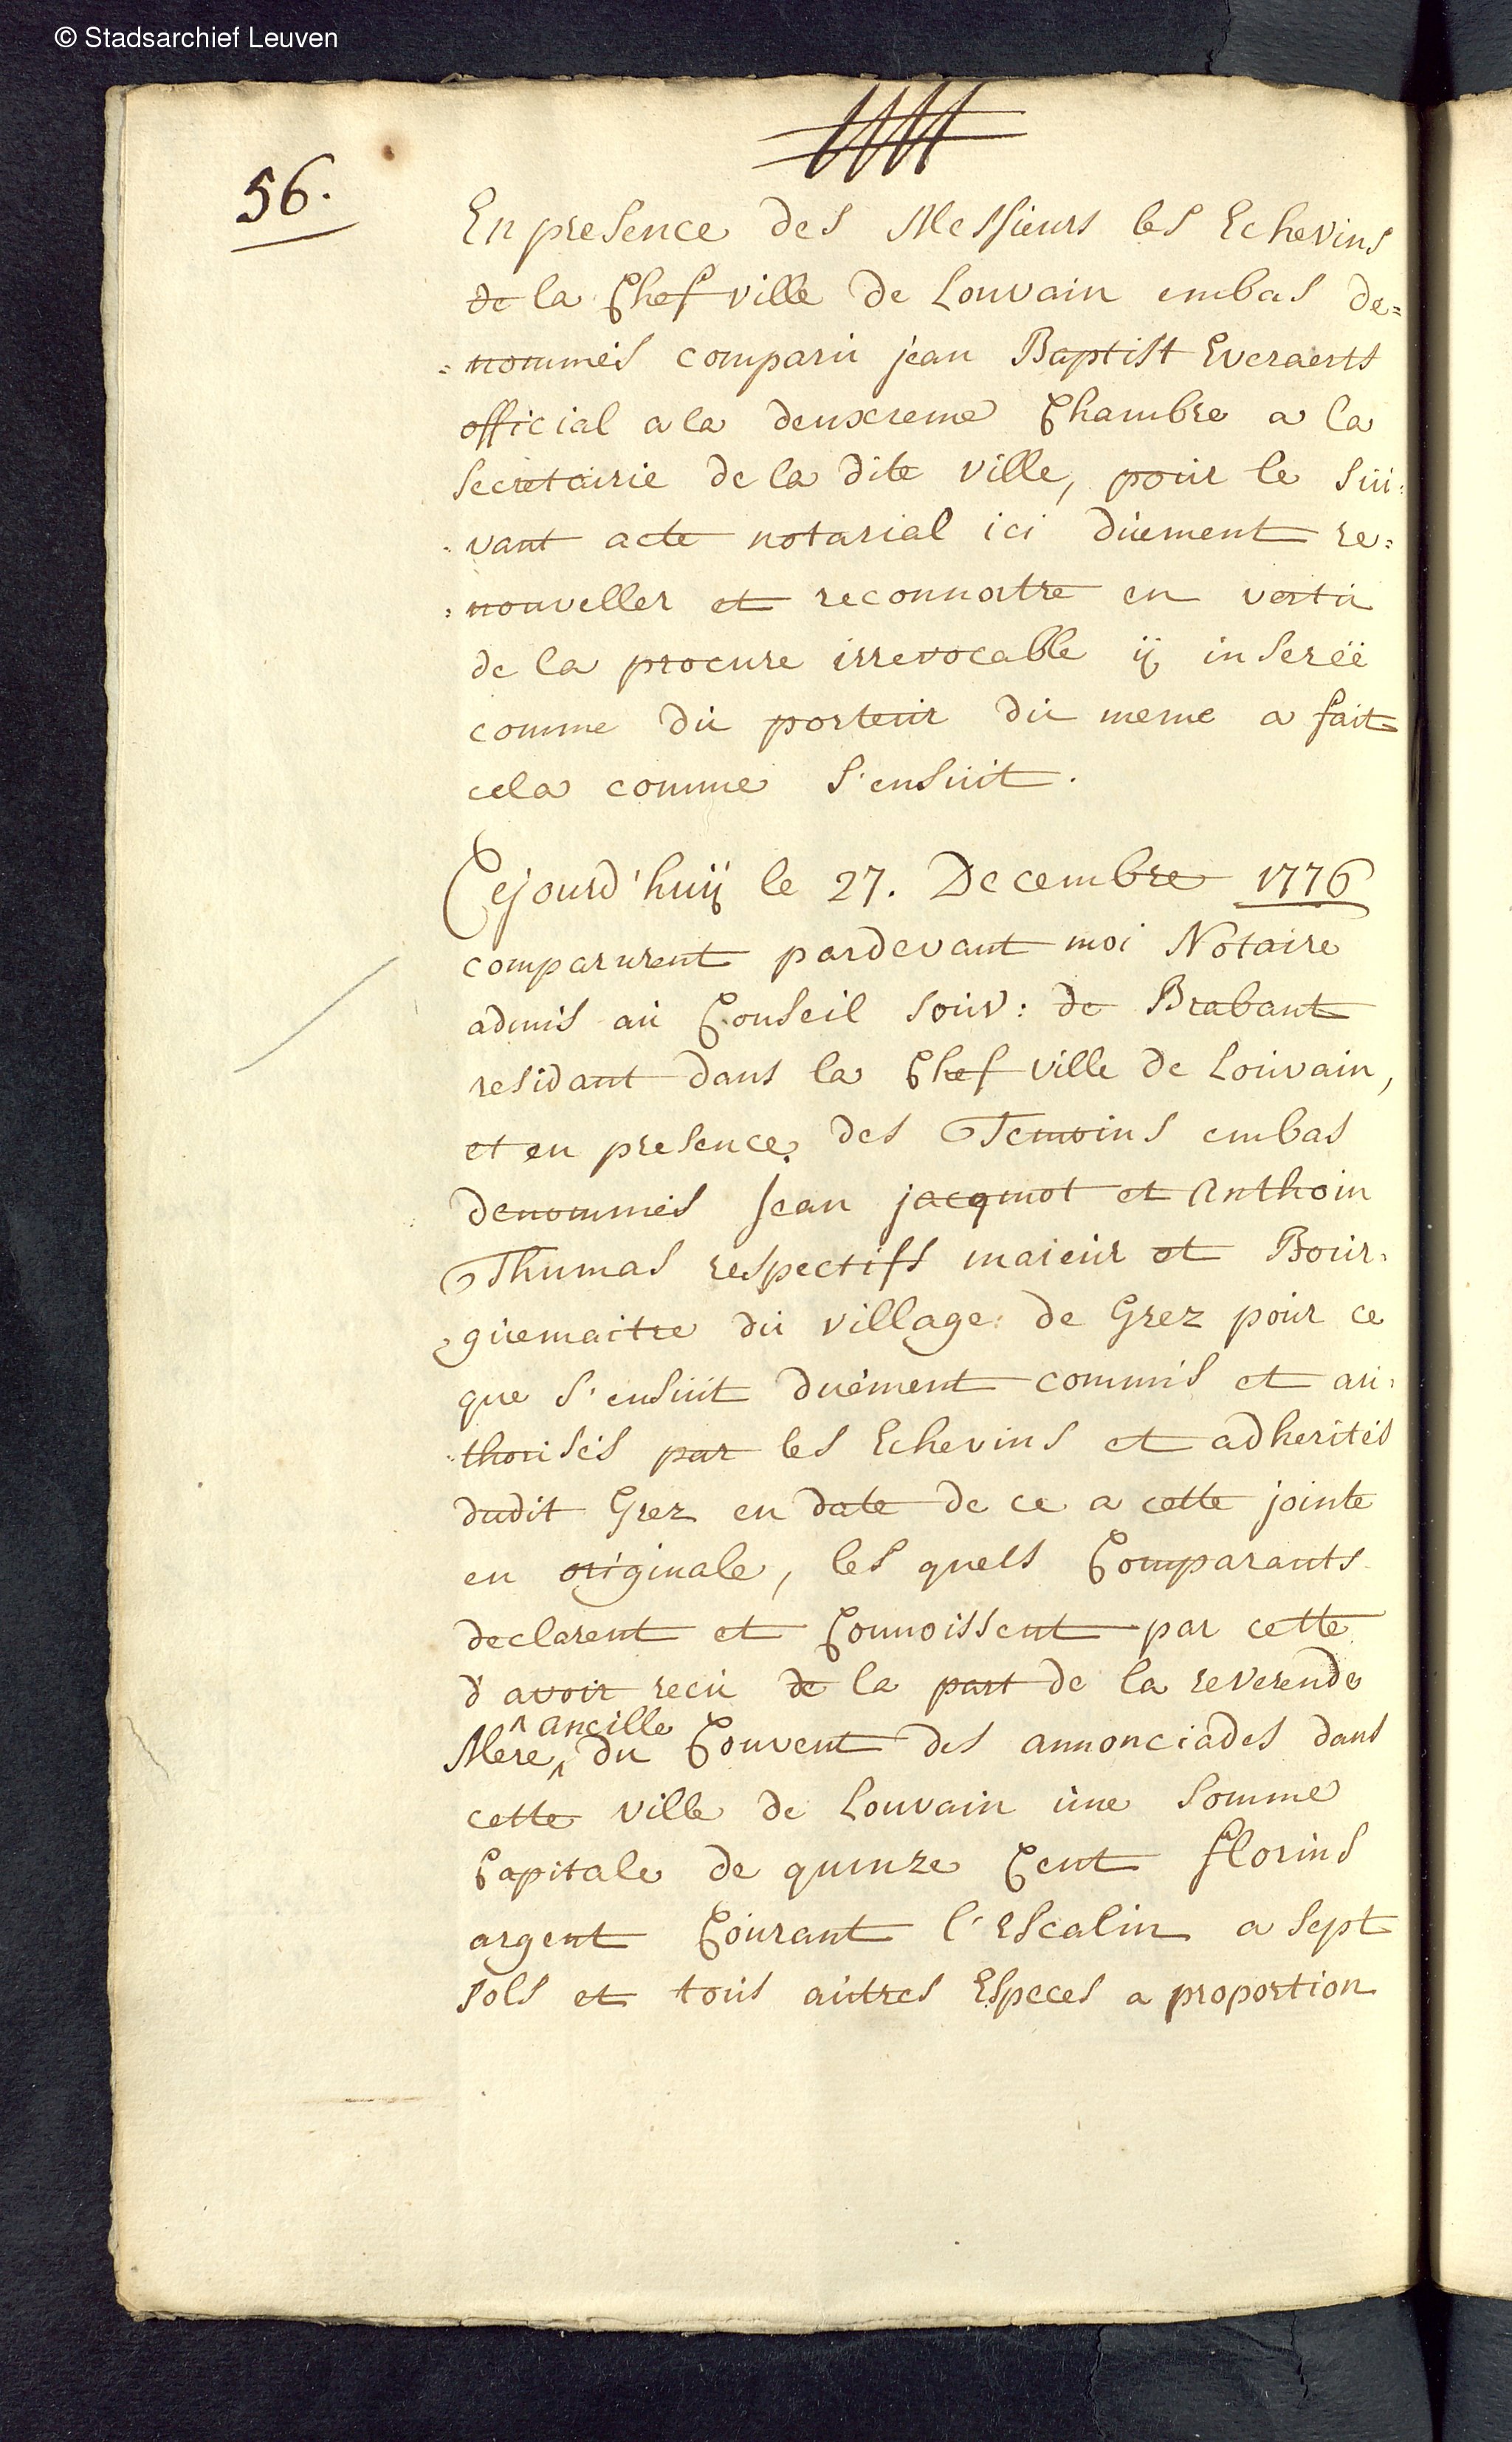 © Stadsarchief Leuven
56.
En presence des Messieurs les Echevins
de la Chef ville de Louvain embas de=
=nommés comparu jean Baptist Everaerts
official a la deuxieme Chambre a la
Secretairie de la dite ville, pour le sui=
=vant acte notarial ici düement re=
=nouveller et reconnoitre en vertu
de la procure irrevocable ÿ inserëe
comme du porteur du meme a fait
cela comme s'ensuit.
Cejourd'huÿ le 27. Decembre 1776
comparurent pardevant moi Notaire
admis au Conseil souv: de Brabant
residant dans la Chef ville de Louvain,
et en presence des Temoins embas
denommés Jean jacqmot et Anthoin
Thumas respectifs maieur et Bour=
=guemaitre du village de Grez pour ce
que s'ensuit duëment commis et au=
=thorisés par les Echevins et adherités
dudit Grez en date de ce a cette jointe
en originale, les quels Comparants
declarent et Connoissent par cette
d'avoir recu de la part de la reverende
ancille
Mere du Couvent des annonciades dans
cette ville de Louvain une somme
Capitale de quinze Cent florins
argent Courant l'Escalin a sept
sols et tous autres Especes a proportion